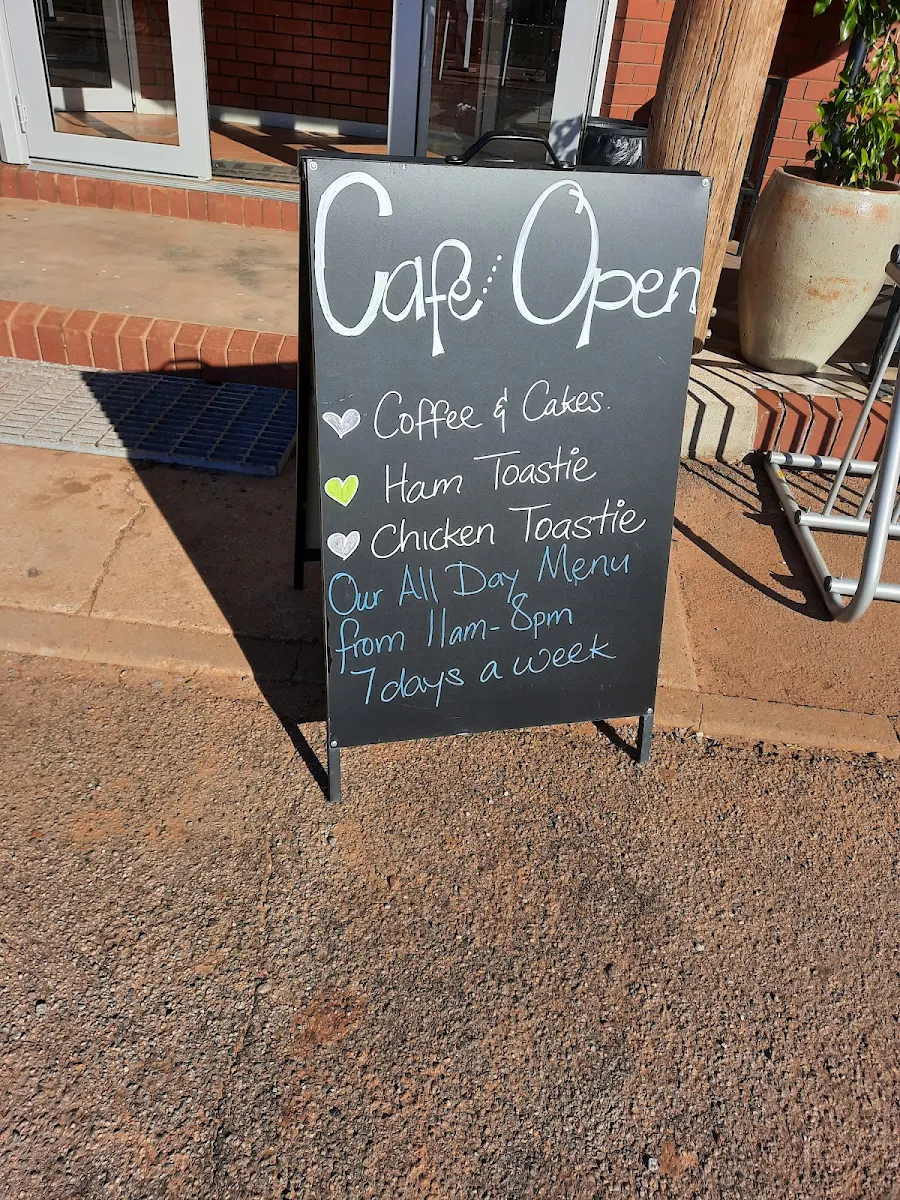 Cafe Open
Coffee & Cakes.
Ham Toastie
Chicken Toastie
Our All Day Menu
from 11am - 8pm
7 days a week